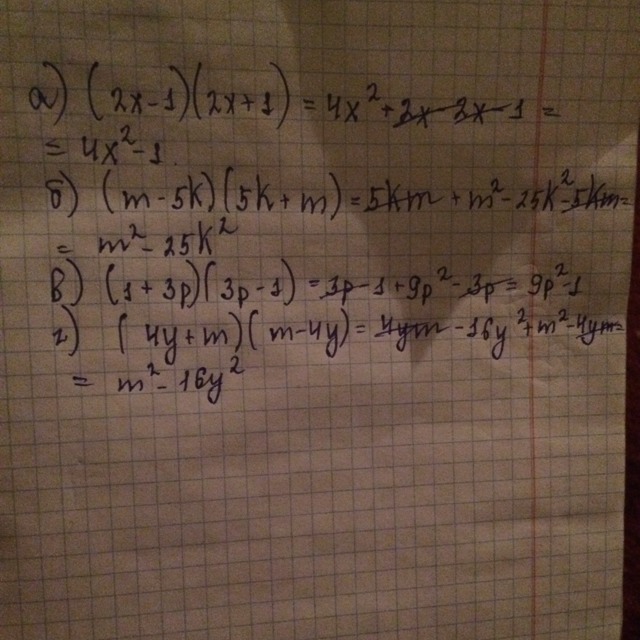 а) (2x-1)(2x+1) = 4x²+2x-2x-1 =
= 4x²-1.
б) (m-5k)(5k+m)=5km+m²-25k²-5km=
= m²-25k²
в) (1+3p)(3p-1)=3p-1+9p²-3p=9p²-1
г) (4y+m)(m-4y)=4ym-16y²+m²-4ym=
= m²-16y²